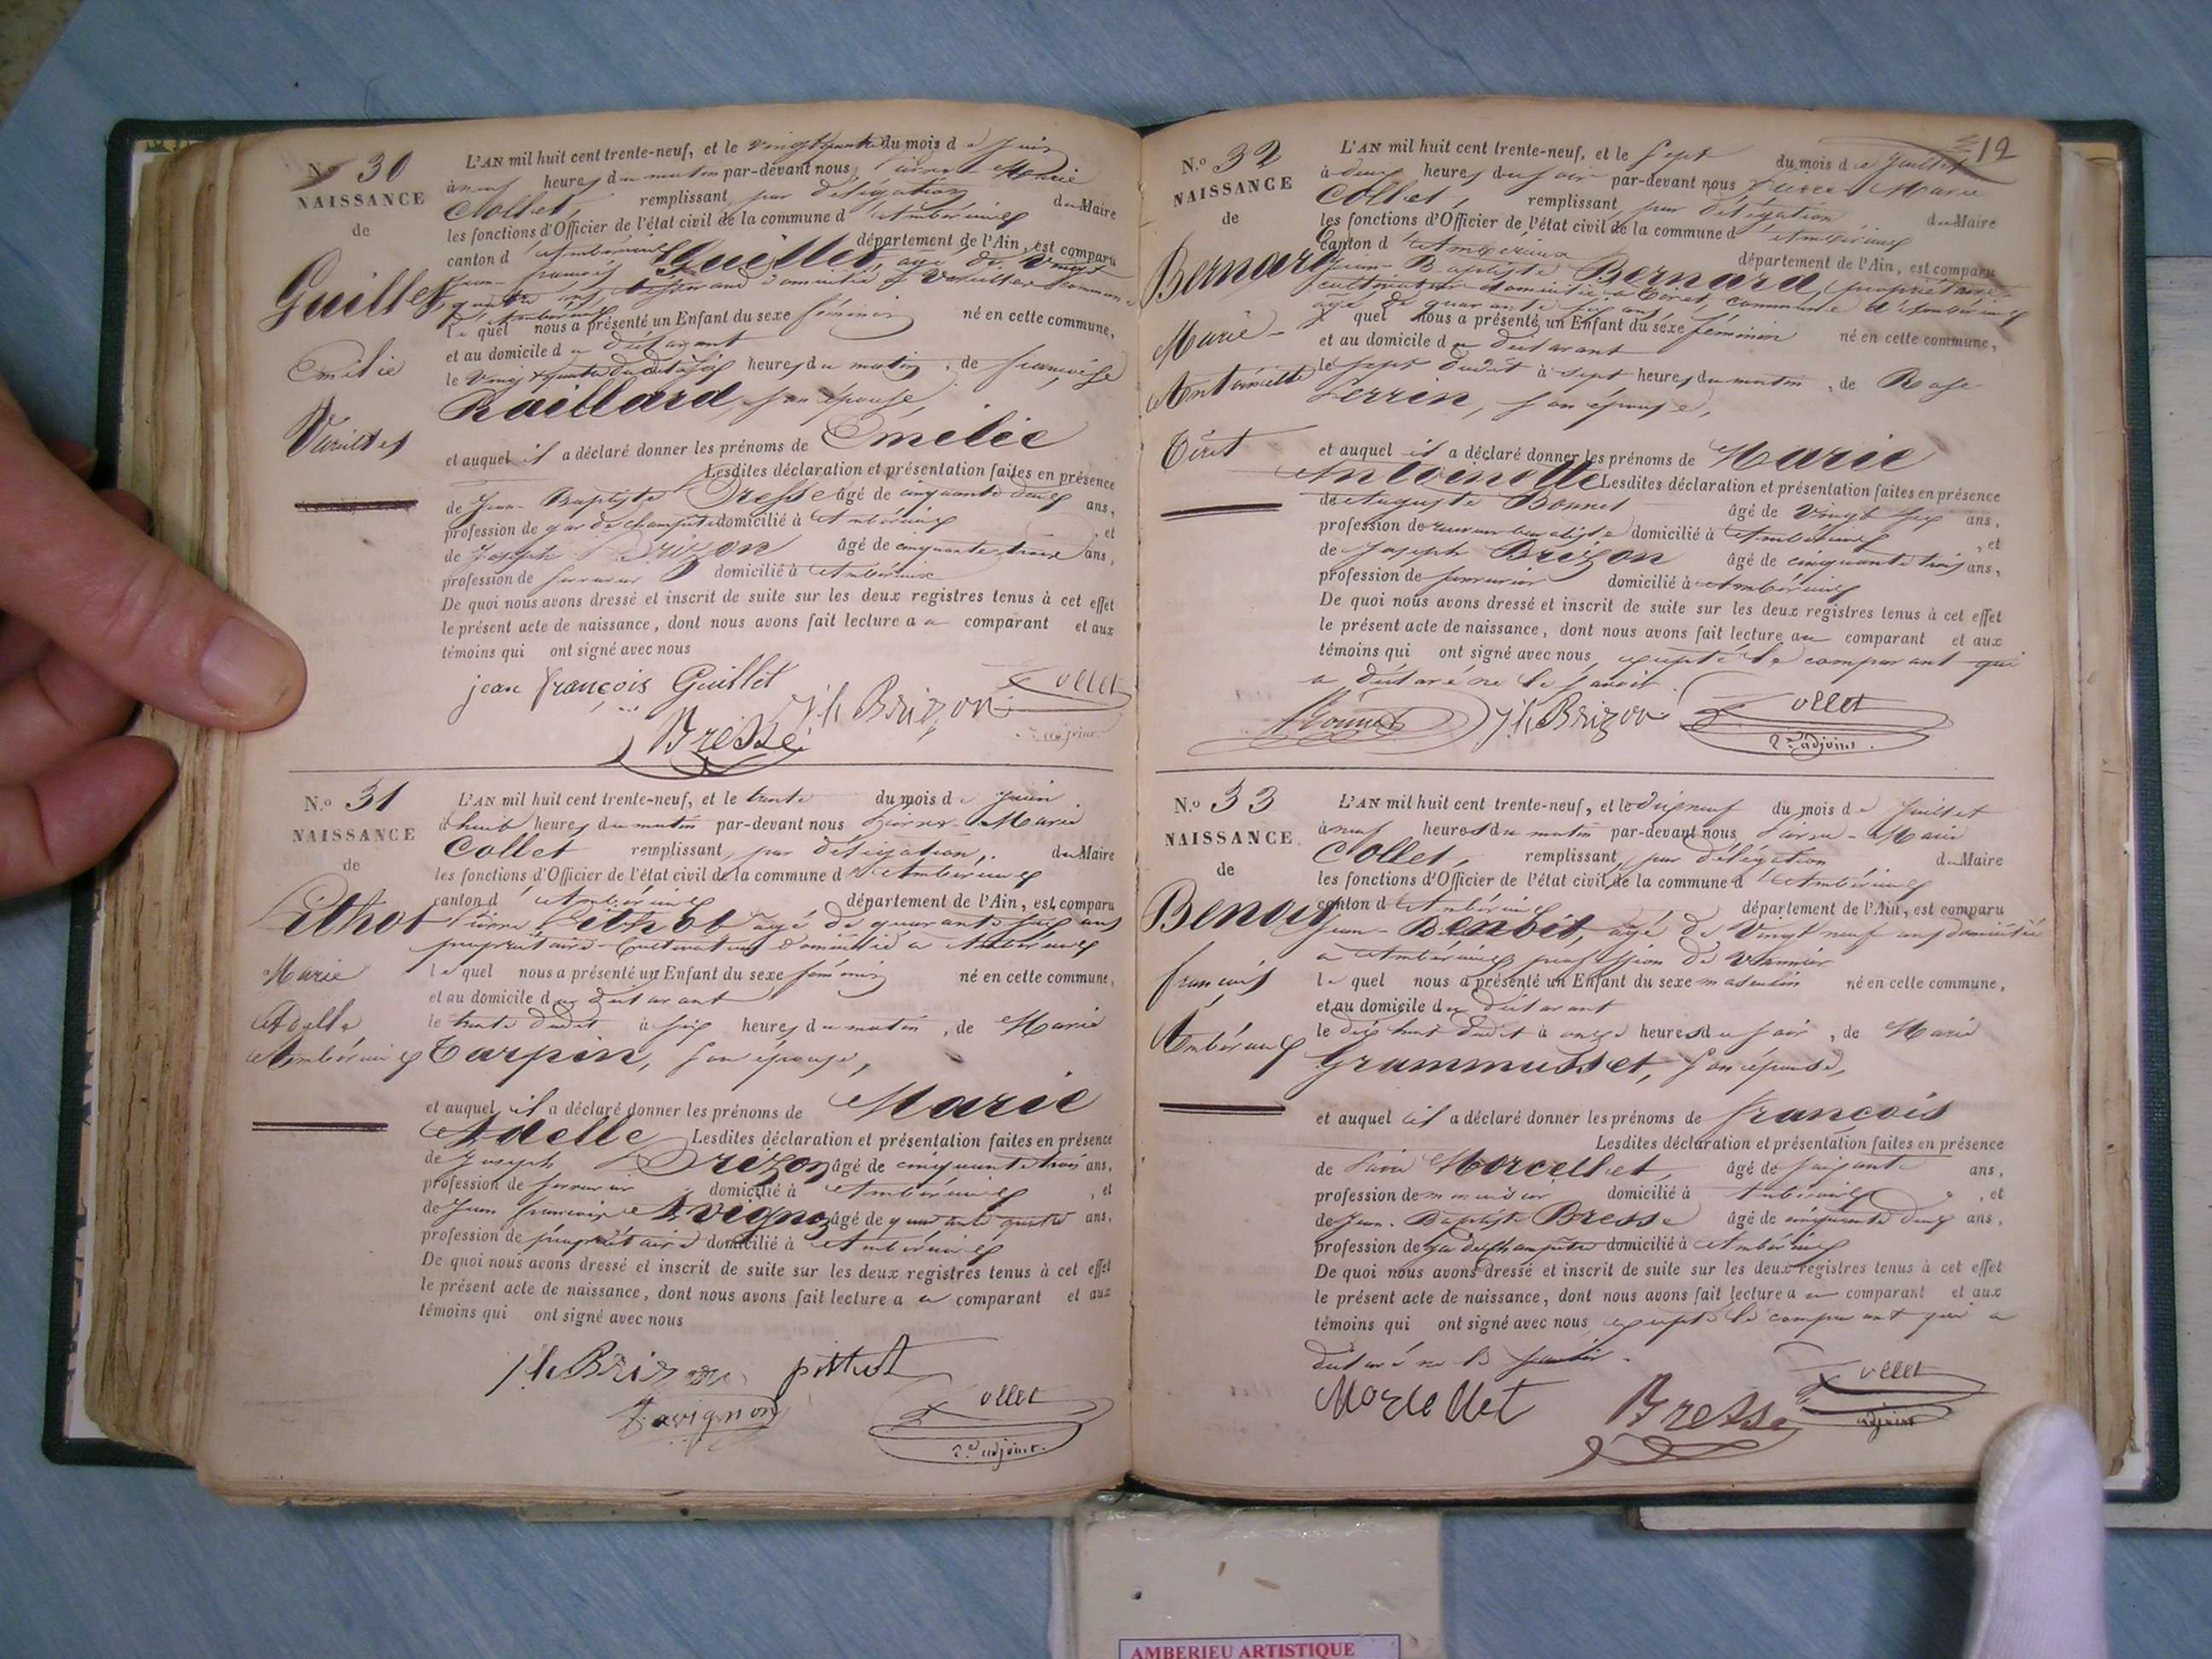 N.o 30
NAISSANCE
de
Guillet
Emilie
Vareilles
L'AN mil huit cent trente-neuf, et le vingt quatre du mois de Juin
à neuf heures du matin par-devant nous Pierre-Marie
Collet, remplissant par délégation du Maire
les fonctions d'Officier de l'état civil de la commune d'Ambérieux
canton d'Ambérieux département de l'Ain, est comparu
Jean-françois Guillet, agé de vingt
quatre ans, tisserand domicilié à Vareilles commune
d'Ambérieux
le quel nous a présenté un Enfant du sexe féminin né en cette commune,
et au domicile du déclarant
le vingt quatre dudit à six heures du matin, de françoise
Raillard, son épouse,
et auquel il a déclaré donner les prénoms de Emélie
Lesdites déclaration et présentation faites en présence
de Jean-Baptiste Bresse âgé de cinquante deux ans,
profession de garde champêtre domicilié à Ambérieux, et
de Joseph Brizon âgé de cinquante trois ans,
profession de serrurier domicilié à Ambérieux
De quoi nous avons dressé et inscrit de suite sur les deux registres tenus à cet effet
le présent acte de naissance, dont nous avons fait lecture au comparant et aux
témoins qui ont signé avec nous
jean françois Guillet Jh Brizon Collet
Bresse adjoint
N.o 31
NAISSANCE
de
Pithot
Marie
Adelle
Ambérieux
L'AN mil huit cent trente-neuf, et le trente du mois de Juin
à huit heures du matin par-devant nous Pierre-Marie
Collet remplissant, par délégation, du Maire
les fonctions d'Officier de l'état civil de la commune d'Ambérieux
canton d'Ambérieux département de l'Ain, est comparu
Pierre Pithot agé de quarante six ans
propriétaire-Cultivateur domicilié à Ambérieux
le quel nous a présenté un Enfant du sexe féminin né en cette commune,
et au domicile du déclarant
le trente dudit à six heures du matin, de Marie
Tarpin, son épouse,
et auquel il a déclaré donner les prénoms de Marie
Adelle Lesdites déclaration et présentation faites en présence
de Joseph Brizon âgé de cinquante trois ans,
profession de serrurier domicilié à Ambérieux, et
de Jean françois Avignon âgé de quarante quatre ans,
profession de propriétaire domicilié à Ambérieux
De quoi nous avons dressé et inscrit de suite sur les deux registres tenus à cet effet
le présent acte de naissance, dont nous avons fait lecture au comparant et aux
témoins qui ont signé avec nous
Jh Brizon pithot
avignon Collet
2e adjoint.
12
N.o 32
NAISSANCE
de
Bernard
Marie-
Antoinette
Tiret
L'AN mil huit cent trente-neuf, et le sept du mois de Juillet
à deux heures du soir par-devant nous Pierre-Marie
Collet, remplissant par délégation du Maire
les fonctions d'Officier de l'état civil de la commune d'Ambérieux
canton d'Ambérieux département de l'Ain, est comparu
Jean-Baptiste Bernard, propriétaire
cultivateur domicilié à Tiret, commune d'Ambérieux
agé de quarante six ans,
quel nous a présenté un Enfant du sexe féminin né en cette commune,
et au domicile du déclarant
le sept dudit à sept heures du matin, de Rose
Perrin, son épouse,
et auquel il a déclaré donner les prénoms de Marie
Antoinette Lesdites déclaration et présentation faites en présence
de Auguste Bonnet âgé de vingt six ans,
profession de domicilié à Ambérieux, et
de Joseph Brizon âgé de cinquante trois ans,
profession de serrurier domicilié à Ambérieux
De quoi nous avons dressé et inscrit de suite sur les deux registres tenus à cet effet
le présent acte de naissance, dont nous avons fait lecture au comparant et aux
témoins qui ont signé avec nous excepté le comparant qui
a déclaré ne le savoir.
Bonnet Jh Brizon Collet
2e adjoint.
N.o 33
NAISSANCE
de
Benoit
françois
Ambérieux
L'AN mil huit cent trente-neuf, et le dix neuf du mois de Juillet
à neuf heures du matin par-devant nous Pierre-Marie
Collet, remplissant, par délégation du Maire
les fonctions d'Officier de l'état civil de la commune d'Ambérieux
canton d'Ambérieux département de l'Ain, est comparu
Jean-Benoit, agé de vingt neuf ans domicilié
à Ambérieux profession de Vannier
le quel nous a présenté un Enfant du sexe masculin né en cette commune,
et au domicile du déclarant
le dix huit dudit à onze heures du soir, de Marie
Grammusset, son épouse,
et auquel il a déclaré donner les prénoms de françois
Lesdites déclaration et présentation faites en présence
de Morcellet, âgé de soixante ans,
profession de menuisier domicilié à Ambérieux, et
de Jean-Baptiste Bresse âgé de cinquante deux ans,
profession de garde champêtre domicilié à Ambérieux
De quoi nous avons dressé et inscrit de suite sur les deux registres tenus à cet effet
le présent acte de naissance, dont nous avons fait lecture au comparant et aux
témoins qui ont signé avec nous excepté le comparant qui a
déclaré ne le savoir.
Morcellet Bresse Collet
adjoint
AMBERIEU ARTISTIQUE